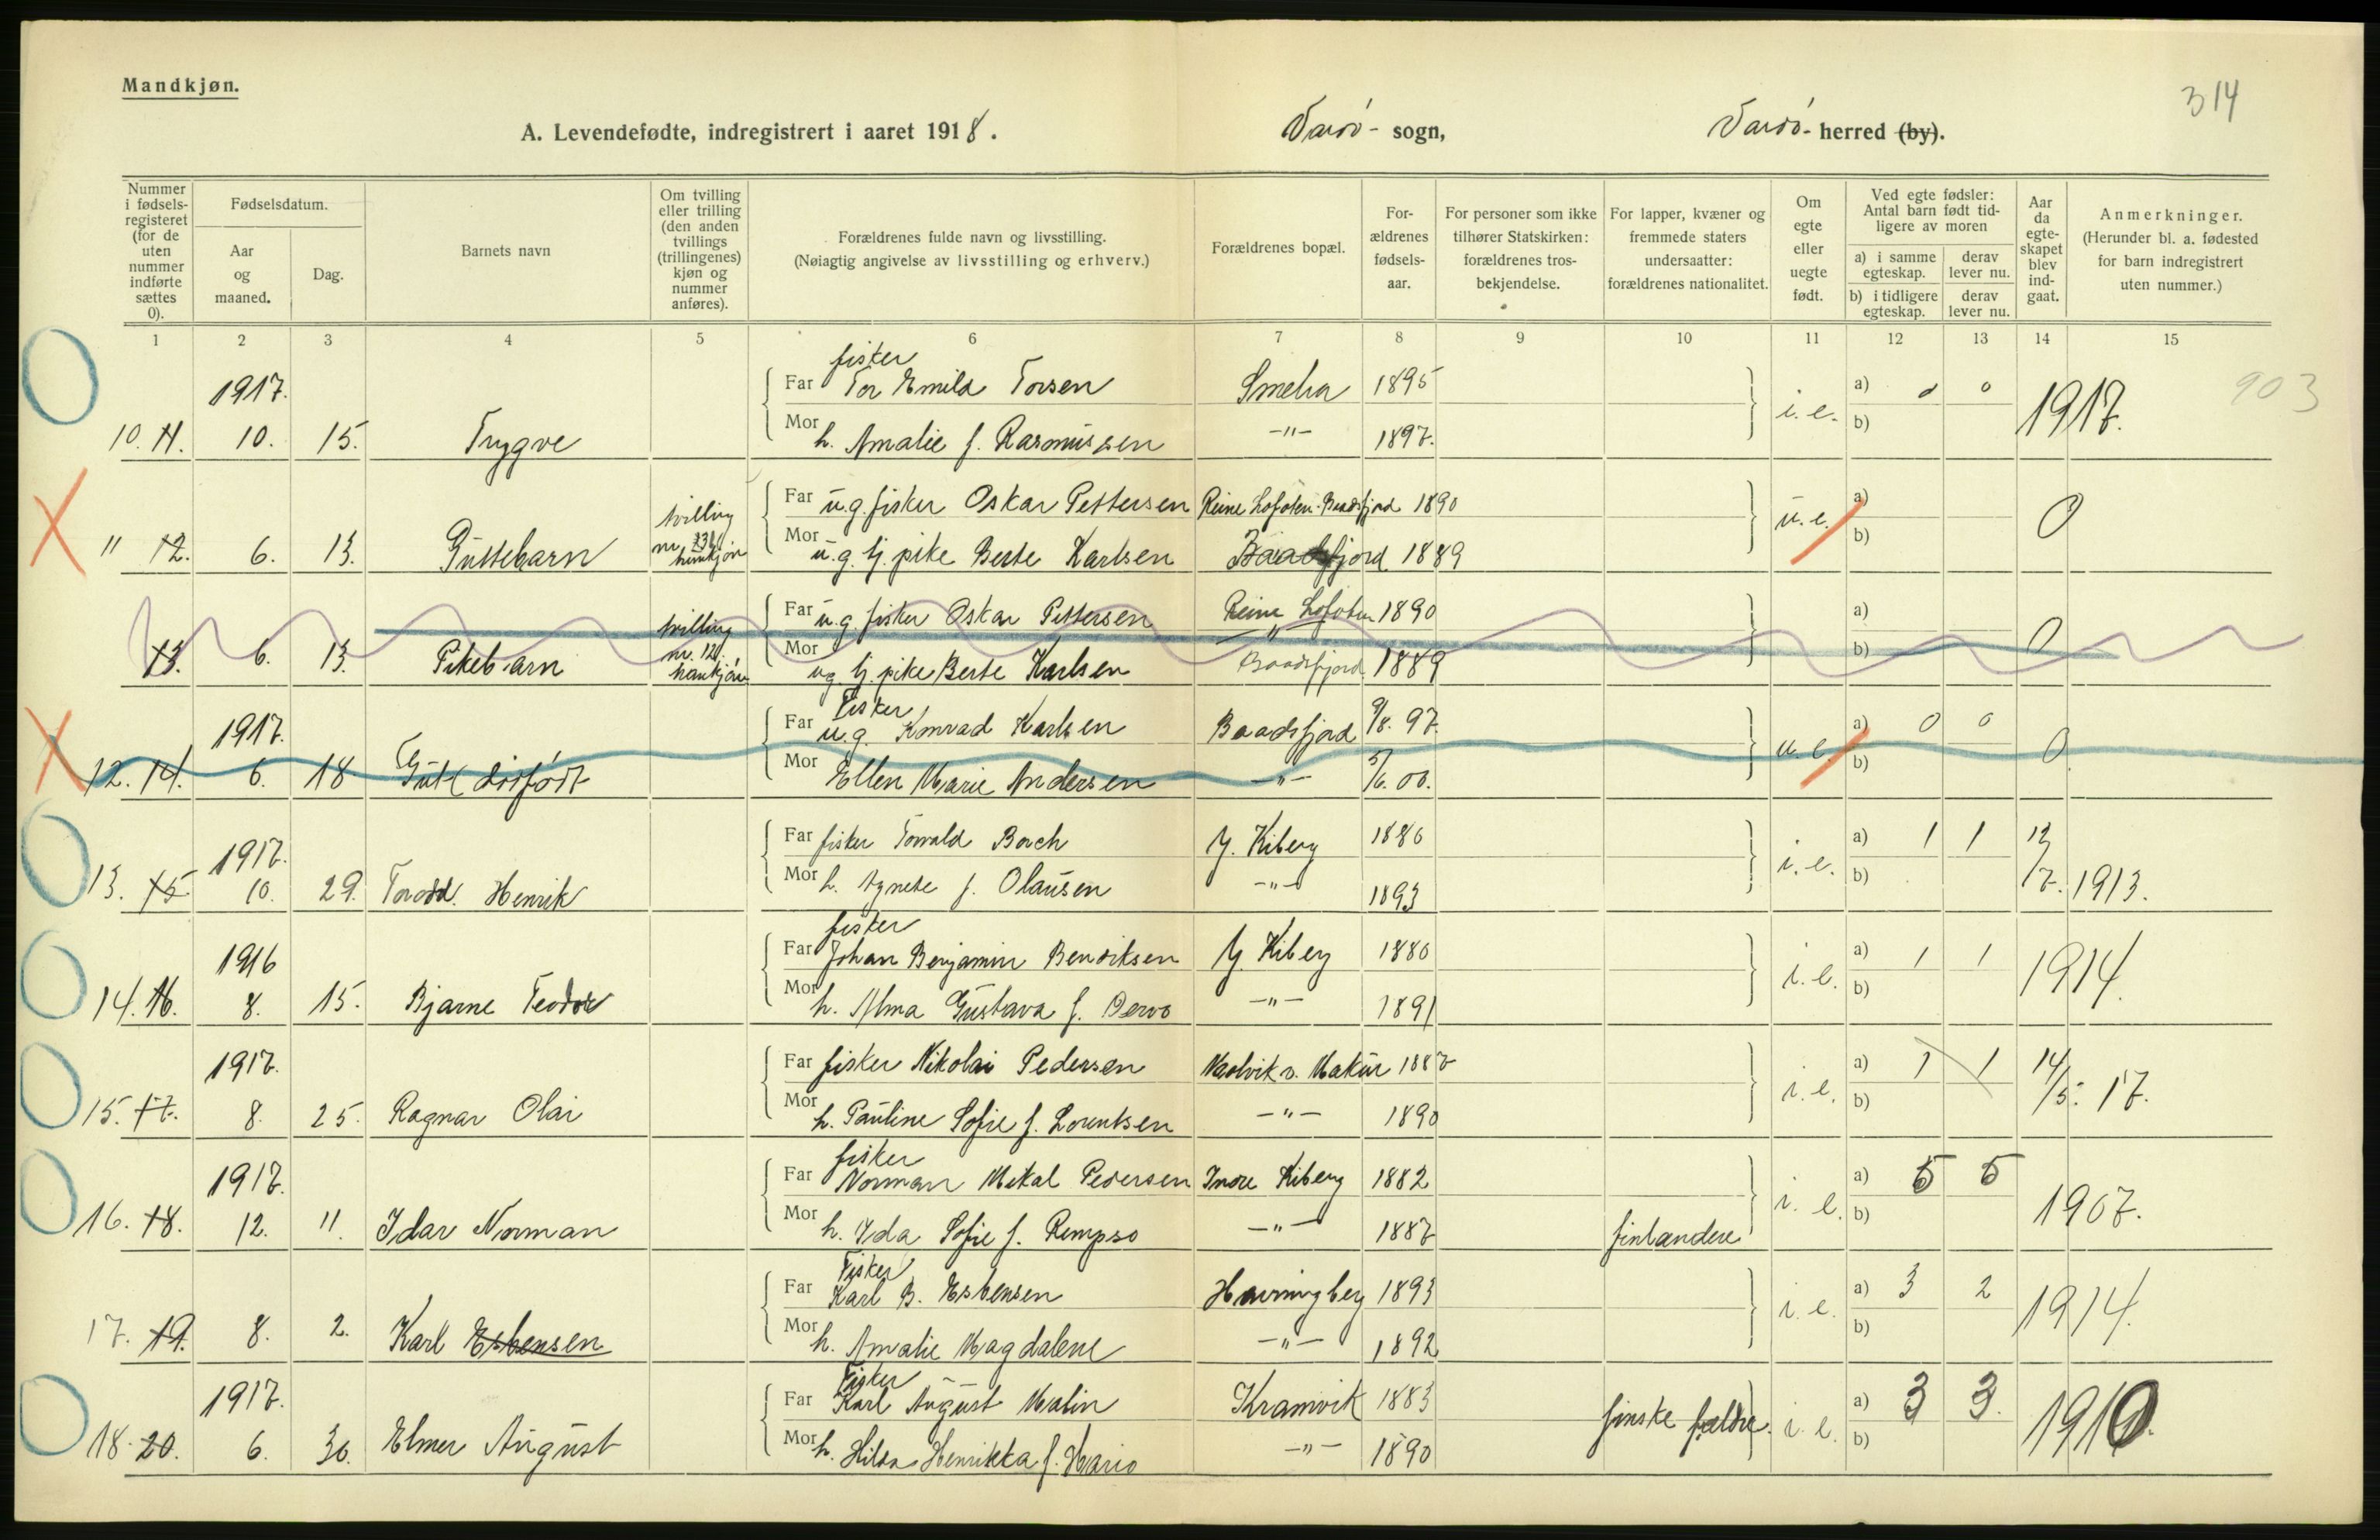 Mandkjøn.
314
A. Levendefødte, indregistrert i aaret 1918. Vardö- sogn, Vardö- herred (by).
Nummer i fødselsregisteret (for de uten nummer indførte sættes 0).
Fødselsdatum.
Aar og maaned.
Dag.
Barnets navn
Om tvilling eller trilling (den anden tvillings (trillingenes) kjøn og nummer anføres).
Forældrenes fulde navn og livsstilling.
(Nøiagtig angivelse av livsstilling og erhverv.)
Forældrenes bopæl.
Forældrenes fødselsaar.
For personer som ikke tilhører Statskirken: forældrenes trosbekjendelse.
For lapper, kvæner og fremmede staters undersaatter: forældrenes nationalitet.
Om egte eller uegte født.
Ved egte fødsler: Antal barn født tidligere av moren
a) i samme egteskap. derav lever nu.
b) i tidligere egteskap. derav lever nu.
Aar da egteskapet blev indgaat.
Anmerkninger.
(Herunder bl. a. fødested for barn indregistrert uten nummer.)
1 2 3 4 5 6 7 8 9 10 11 12 13 14 15
fisker
1917. Far Tor Emild Torsen Smelia 1895 i. e. a) 0 0 1917. 903
10. 11. 10. 15. Trygve Mor h. Amalie f. Rasmussen -"- 1897. b)
tvilling Far u.g. fisker Oskar Pettersen Reine Lofoten. Baadsfjord 1890 u. e. a) 0
" 12. 6. 13. Guttebarn nr. hunkjøn Mor u.g. tj. pike Berte Karlsen Baadsfjord 1889 b)
tvilling Far u.g. fisker Oskar Pettersen Reine Lofoten 1890 a) 0
13. 6. 13. Pikebarn nr. 12. hankjøn Mor ug tj. pike Berte Karlsen Baadsfjord 1889 b)
Fisker
1917. Far u.g. Konrad Karlsen Baadsfjord 9/8. 97. u. e. a) 0 0 0
12. 14. 6. 18 Gut (dødfødt Mor Ellen Marie Andersen -"- 5/6. 00. b)
1917. Far fisker Torvald Borch Y. Kiberg 1886 i. e. a) 1 1 12/7. 1913.
13. 15 10. 29. Torodd. Henrik Mor h. Agnete f. Olausen -"- 1893 b)
fisker
1916 Far Johan Benjamin Bendiksen Y. Kiberg 1880 i. e. a) 1 1 1914.
14. 16. 8. 15. Bjarne Teodor Mor h. Alma Gustava f. Dervo -"- 1891 b)
1917. Far fisker Nikolai Pedersen 1887 i. e. a) 1 1 14/5. 17.
15. 17. 8. 25. Ragnar Olai Mor h. Pauline Sofie f. Lorentsen -"- 1890 b)
fisker
1917. Far Norman Mikal Pedersen Indre Kiberg 1882 i. e. a) 5 5 1907.
16. 18. 12. 11. Idar Norman Mor h. Ida Sofie f. Rempso -"- 1887 finlandere b)
Fisker
Far Karl B. Esbensen Havningberg 1893 i. e. a) 3 2 1914.
17. 19. 8. 2. Karl Esbensen Mor h. Amalie Magdalene -"- 1892 b)
Fisker
1917. Far Karl August Malin Kramvik 1883 finske fældre. i. e. a) 3 3. 1910.
18. 20. 6. 30. Elmer August Mor h. Hilda Henrikka f. Mario -"- 1890 b)